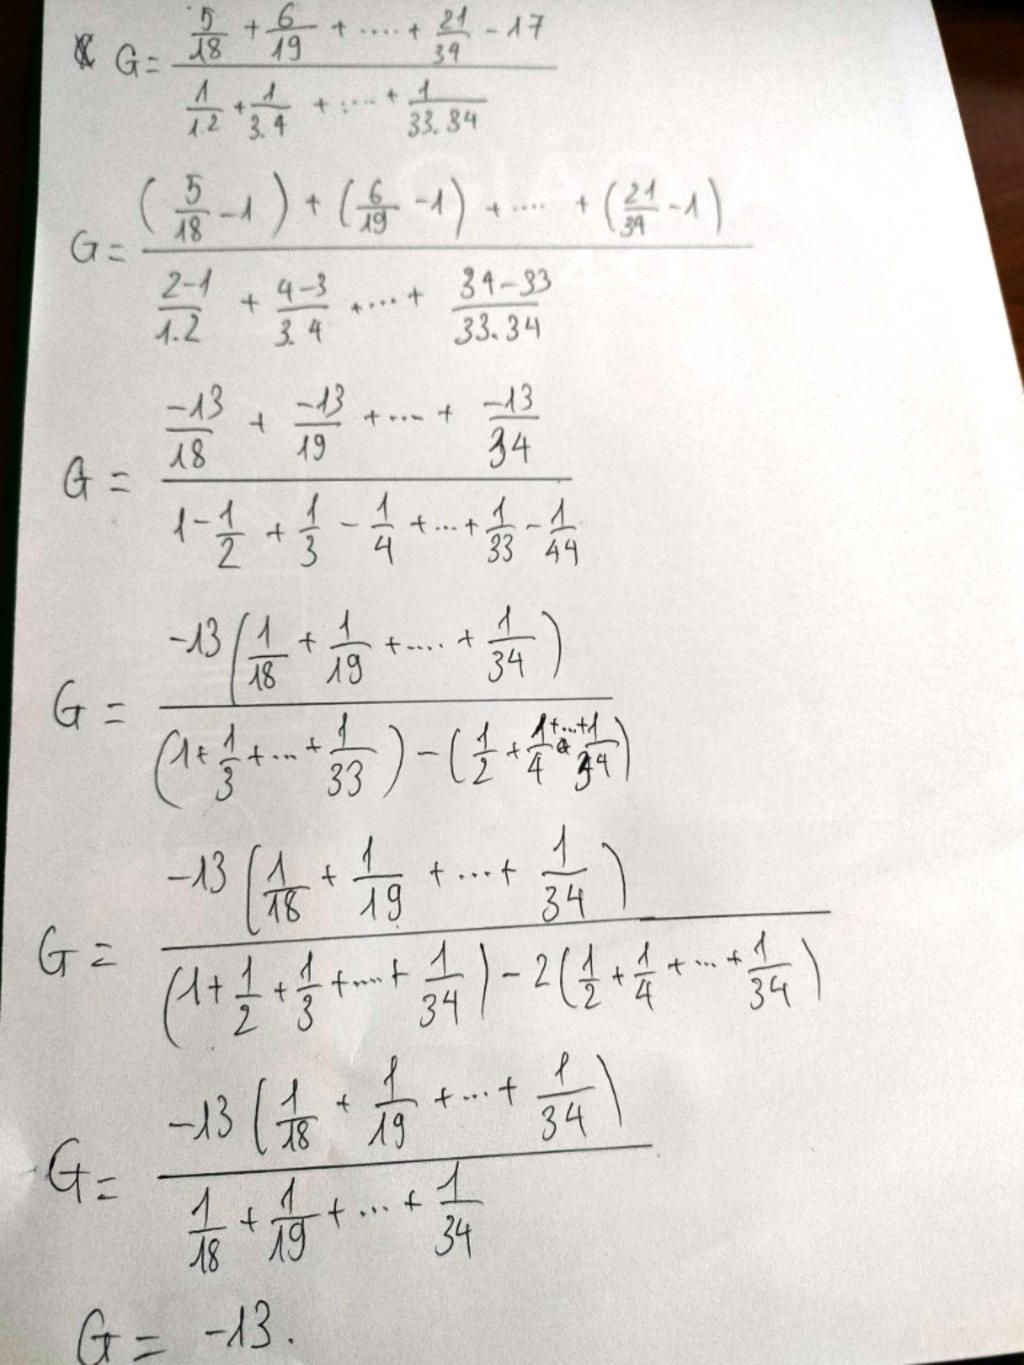 G = (5/18 + 6/19 + .... + 21/34 - 17) / (1/1.2 + 1/3.4 + .... + 1/33.34)
G = ((5/18 - 1) + (6/19 - 1) + .... + (21/34 - 1)) / (2-1/1.2 + 4-3/3.4 + .... + 34-33/33.34)
G = (-13/18 + -13/19 + .... + -13/34) / (1 - 1/2 + 1/3 - 1/4 + ... + 1/33 - 1/44)
G = -13(1/18 + 1/19 + .... + 1/34) / ((1 + 1/3 + ... + 1/33) - (1/2 + 1/4 + ... + 1/34))
G = -13(1/18 + 1/19 + ... + 1/34) / ((1 + 1/2 + 1/3 + .... + 1/34) - 2(1/2 + 1/4 + ... + 1/34))
G = -13(1/18 + 1/19 + ... + 1/34) / (1/18 + 1/19 + ... + 1/34)
G = -13.